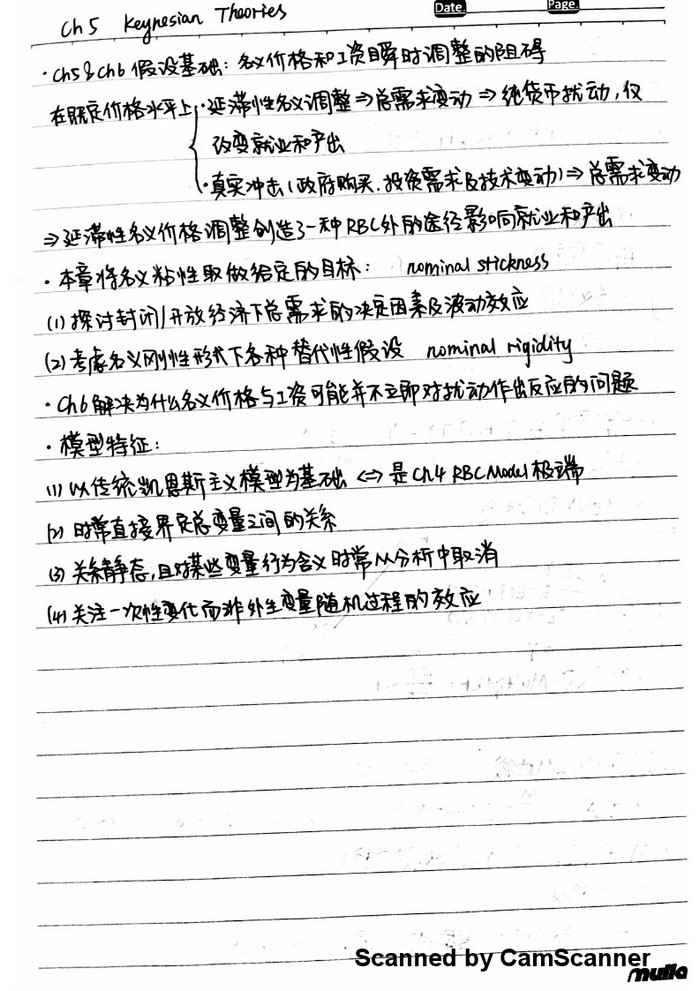 Date.
Page.
Ch5 Keynesian Theories
·Ch5&Ch6假设基础：名义价格和工资瞬时调整的阻碍
在既定价格水平上 ·延滞性名义调整⇒总需求变动⇒纯货币扰动，仅
改变就业和产出
·真实冲击(政府购买、投资需求及技术变动)⇒总需求变动
⇒延滞性名义价格调整创造了一种RBC外的途径影响就业和产出
·本章将名义粘性取做给定的目标： nominal stickness
(1) 探讨封闭/开放经济下总需求的决定因素及波动效应
(2) 考虑名义刚性形式下各种替代性假设 nominal rigidity
·Ch6解决为什么名义价格与工资可能并不立即对扰动作出反应的问题
·模型特征：
(1) 以传统凯恩斯主义模型为基础 ⇔ 是Ch4 RBC Model 极端
(2) 时常直接界定总变量之间的关系
(3) 关系静态，且对某些变量行为含义时常从分析中取消
(4) 关注一次性变化而非外生变量随机过程的效应
Scanned by CamScanner
mulla